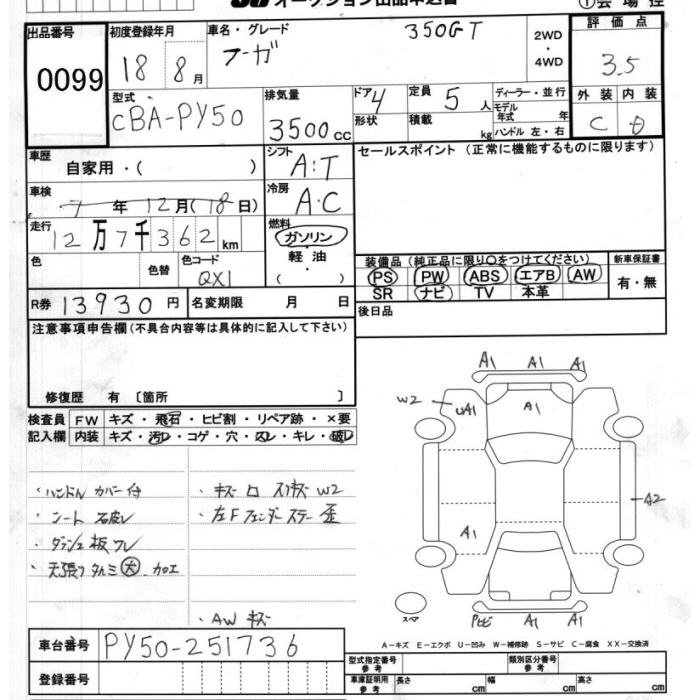 オークション出品申込書
①会場控
出品番号
0099
初度登録年月
18年8月
車名・グレード
フーガ 350GT
2WD
・
4WD
評価点
3.5
外装 内装
C
型式
CBA-PY50
排気量
3500cc
ドア 4
形状
定員 5人
積載 kg
ディーラー・並行
モデル年式 年
ハンドル 左・右
車歴
自家用・( )
シフト
A・T
セールスポイント (正常に機能するものに限ります)
車検
7年12月(18日)
冷房
A・C
走行
12万7千362km
燃料
ガソリン
・
軽油
( )
色
色替
色コード
QX1
装備品 (純正品に限り○をつけてください)
新車保証書
PS PW ABS エアB AW
有・無
SR ナビ TV 本革
R券 13930円
名変期限 月 日
後日品
注意事項申告欄(不具合内容等は具体的に記入して下さい)
修復歴 有 [箇所 ]
検査員 FW キズ・飛石・ヒビ割・リペア跡・×要
記入欄 内装 キズ・汚レ・コゲ・穴・スレ・キレ・破レ
・ハンドルカバー付
・シート
・天張りタルミ大 加工
・キズ スリキズ W2
・左Fフェンダーステー歪
・AWキズ
A1 A1 A1
W2
UA1
A1
A2
A1
スペア
A1 A1
A-キズ E-エクボ U-凹み W-補修跡 S-サビ C-腐食 XX-交換済
車台番号 PY50-251736
型式指定番号 参考
類別区分番号 参考
登録番号
車庫証明用 参考
長さ cm
幅 cm
高さ cm